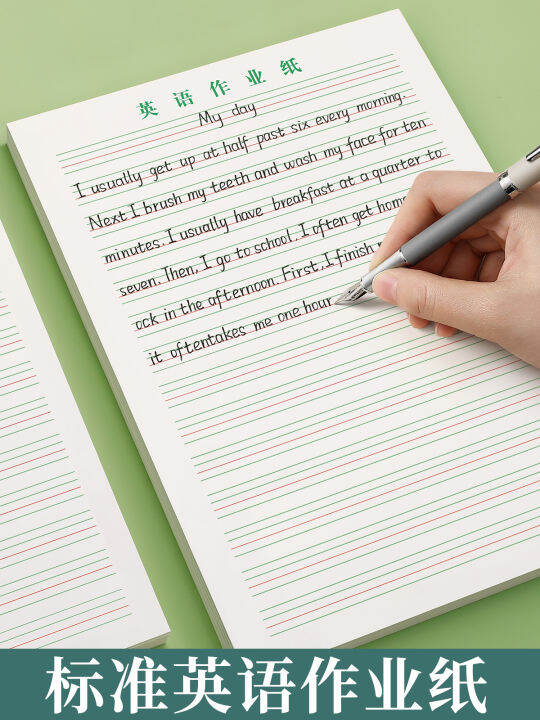 英语作业纸
My day
I usually get up at half past six every morning.
Next I brush my teeth and wash my face for ten
minutes. I usually have breakfast at a quarter to
seven. Then, I go to school. I often get home
ock in the afternoon. First, I finish
it oftentakes me one hour
标准英语作业纸